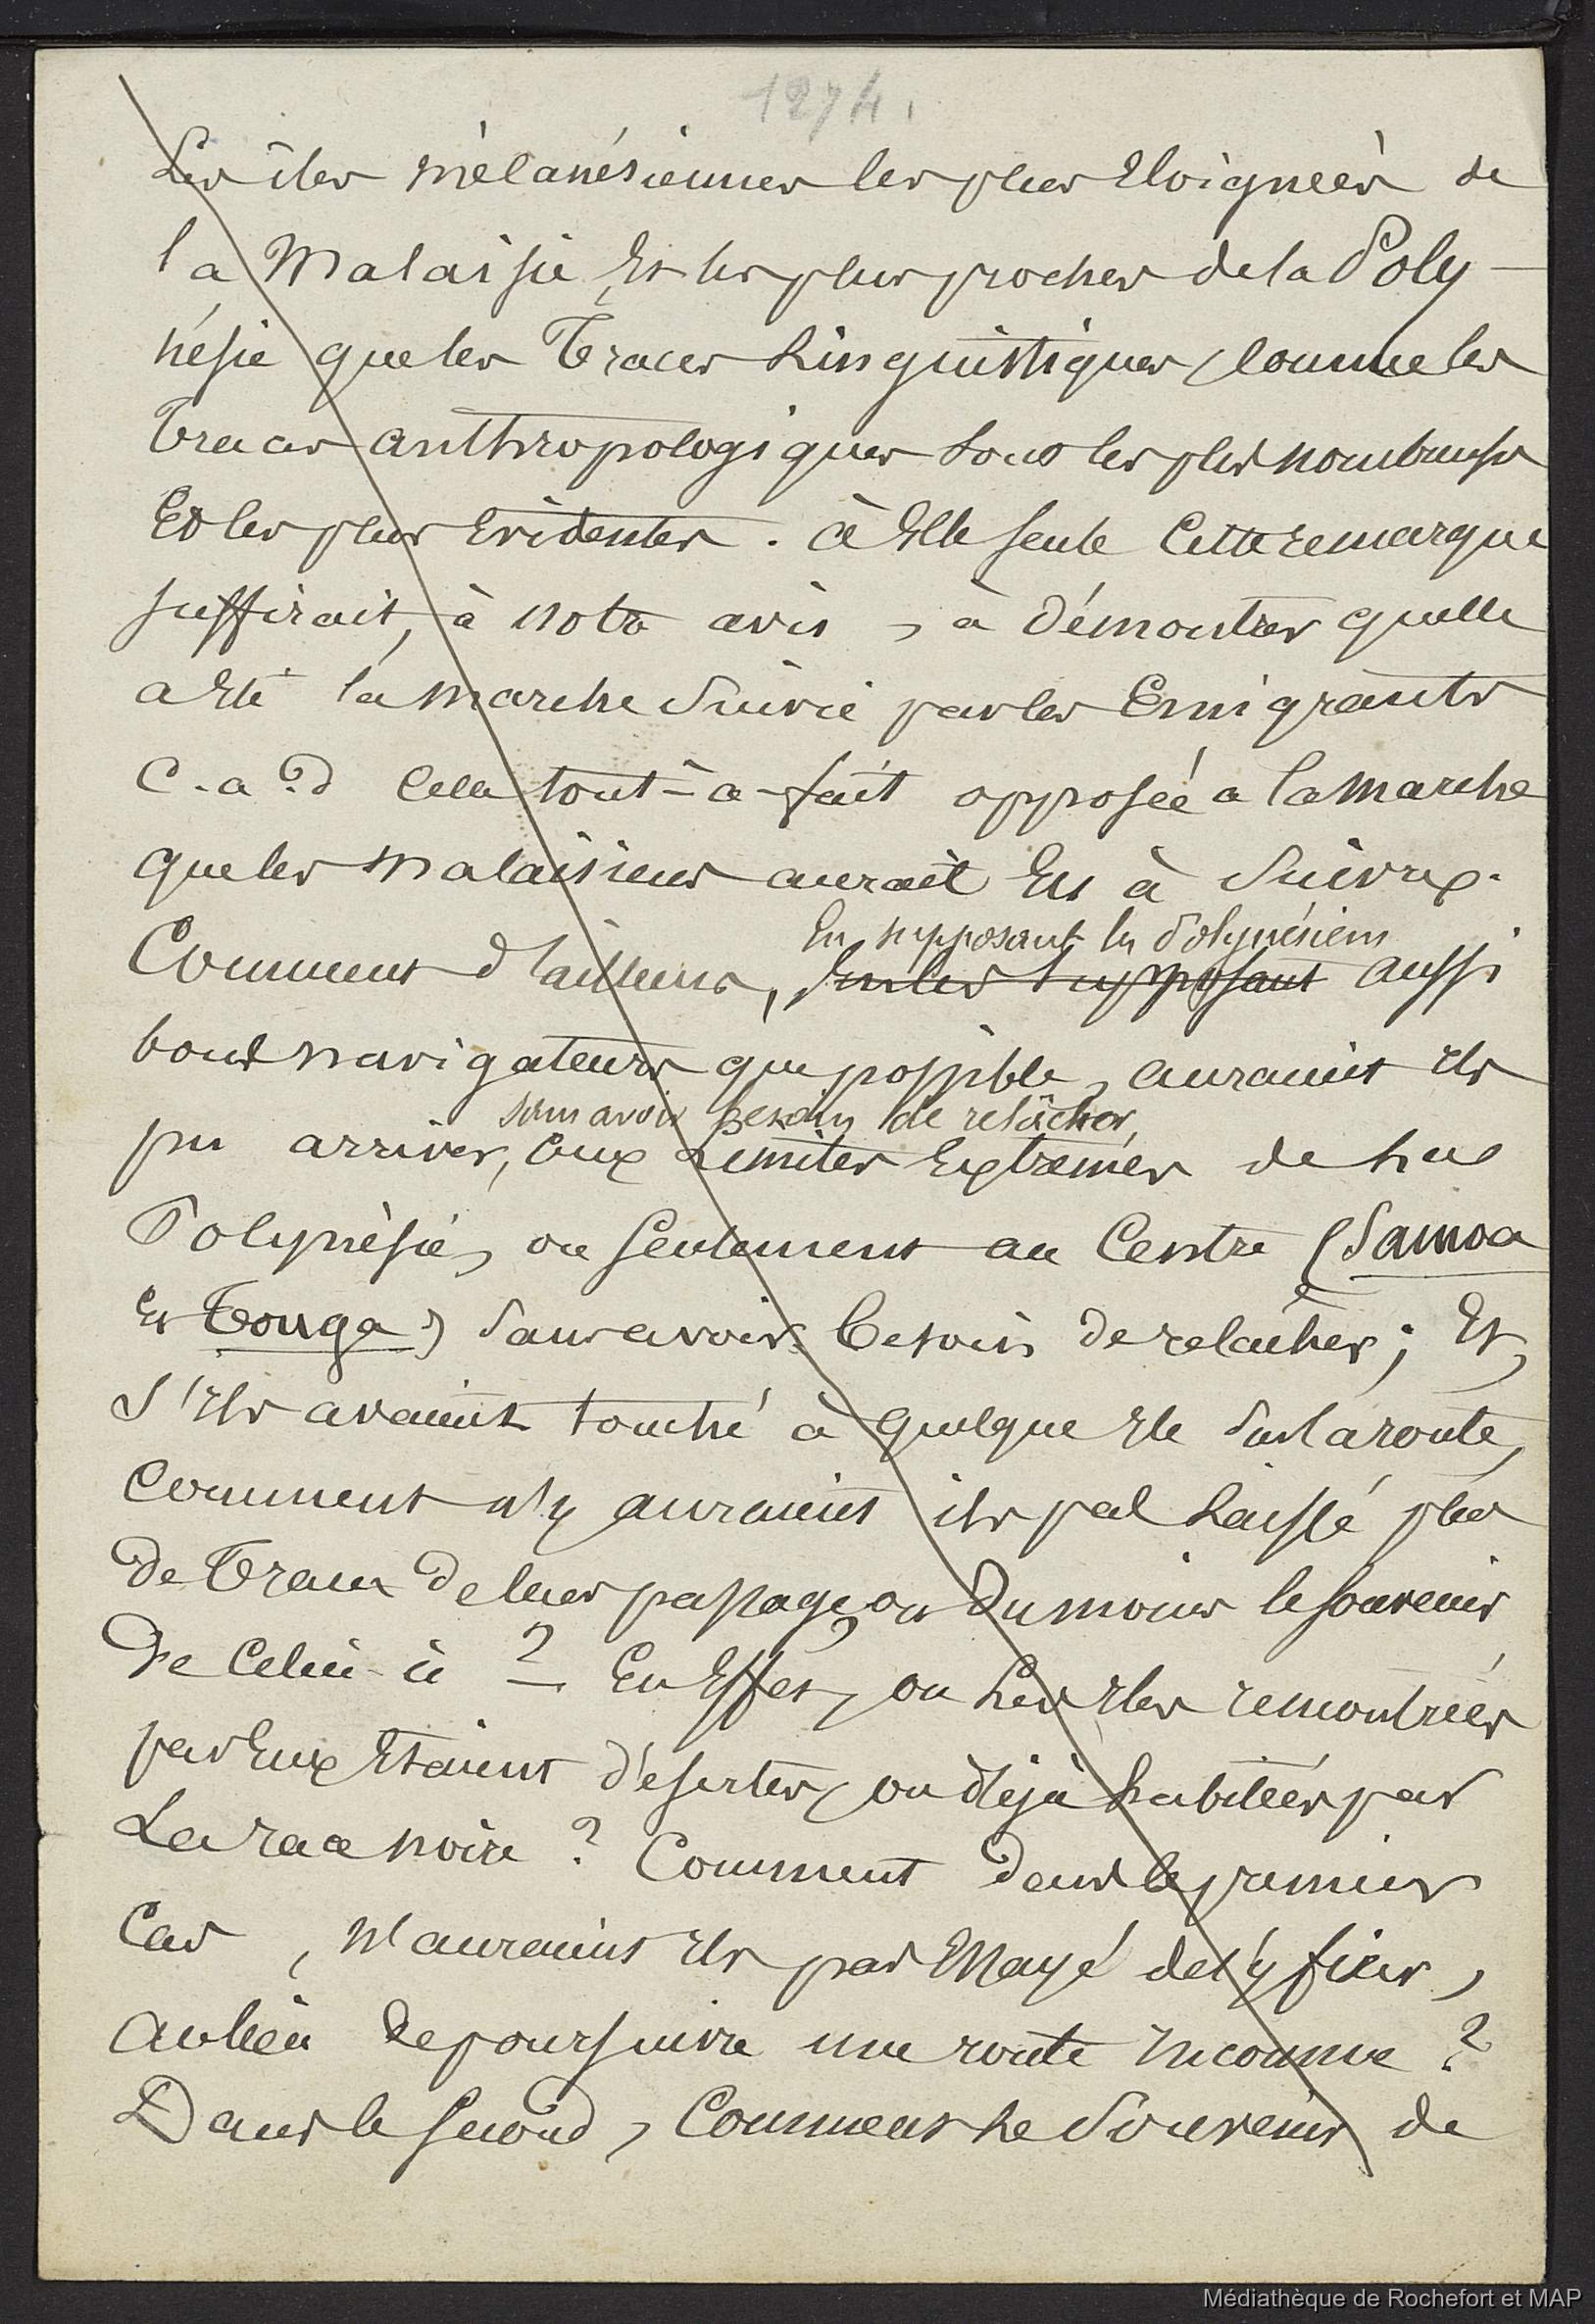 1274.
Les îles mélanésiennes les plus éloignées de
la Malaisie et les plus proches de la Poly-
nésie que les traces linguistiques, comme les
traces anthropologiques sont les plus nombreuses
et les plus évidentes. à elle seule cette remarque
suffirait, à notre avis, à démontrer quelle
a été la marche suivie par les émigrants
C. a. d celle tout-à-fait opposée a la marche
que les malaisiens aurait eu à suivre.
en supposant les Polynésiens
Comment d'ailleurs, en les supposant aussi
bons navigateurs que possible, auraient ils
sans avoir besoin de relâcher,
pu arriver, aux limites extrèmes de la
Polynésie, ou seulement au Centre (Samoa
et Tonga) sans avoir besoin de relâcher; Et,
s'ils avaient touché à quelque île sur la route,
comment n'y auraient ils pas laissé plus
de traces de leur passage, ou du moins le souvenir
de celui-ci ? — En effet, ou les îles rencontrées
par eux étaient désertes, ou déjà habitées par
La race noire ? Comment dans le premier
Cas, n'auraient ils pas essayé de s'y fixer,
au lieu de poursuivre une route inconnue ?
Dans le second, Comment le souvenir de
Médiathèque de Rochefort et MAP